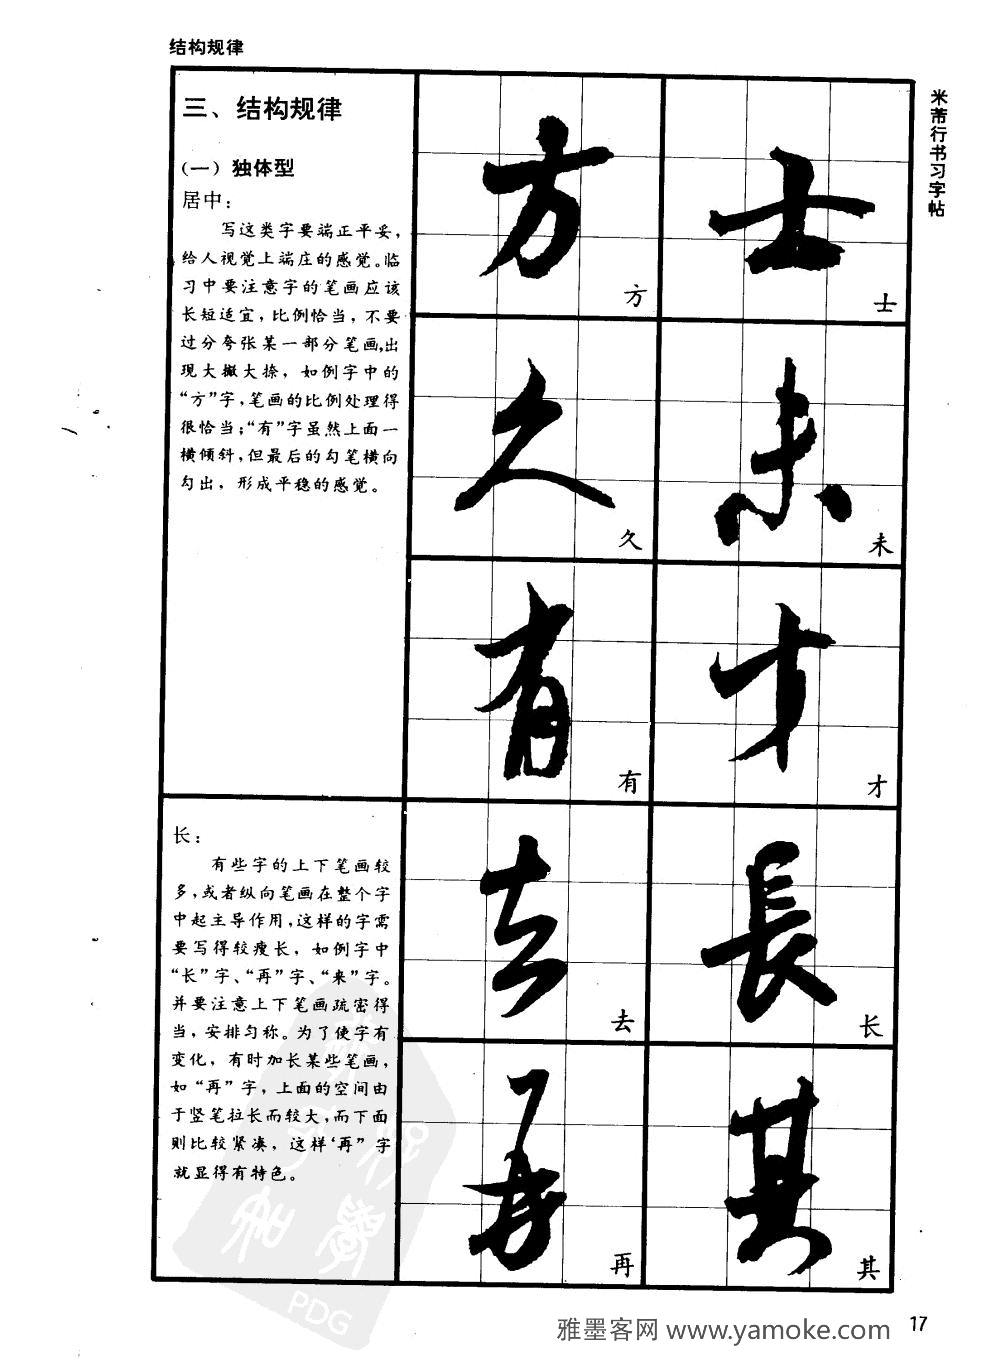 结构规律
三、结构规律
(一) 独体型
居中：
写这类字要端正平妥，
给人视觉上端庄的感觉。临
习中要注意字的笔画应该
长短适宜，比例恰当，不要
过分夸张某一部分笔画,出
现大撇大捺，如例字中的
“方”字，笔画的比例处理得
很恰当；“有”字虽然上面一
横倾斜，但最后的勾笔横向
勾出，形成平稳的感觉。
长：
有些字的上下笔画较
多，或者纵向笔画在整个字
中起主导作用，这样的字需
要写得较瘦长，如例字中
“长”字、“再”字、“来”字。
并要注意上下笔画疏密得
当，安排匀称。为了使字有
变化，有时加长某些笔画，
如“再”字，上面的空间由
于竖笔拉长而较大，而下面
则比较紧凑，这样‘再”字
就显得有特色。
方
方
士
士
久
久
未
未
有
有
才
才
去
去
長
长
再
再
其
其
米芾行书习字帖
PDG
雅墨客网 www.yamoke.com
17